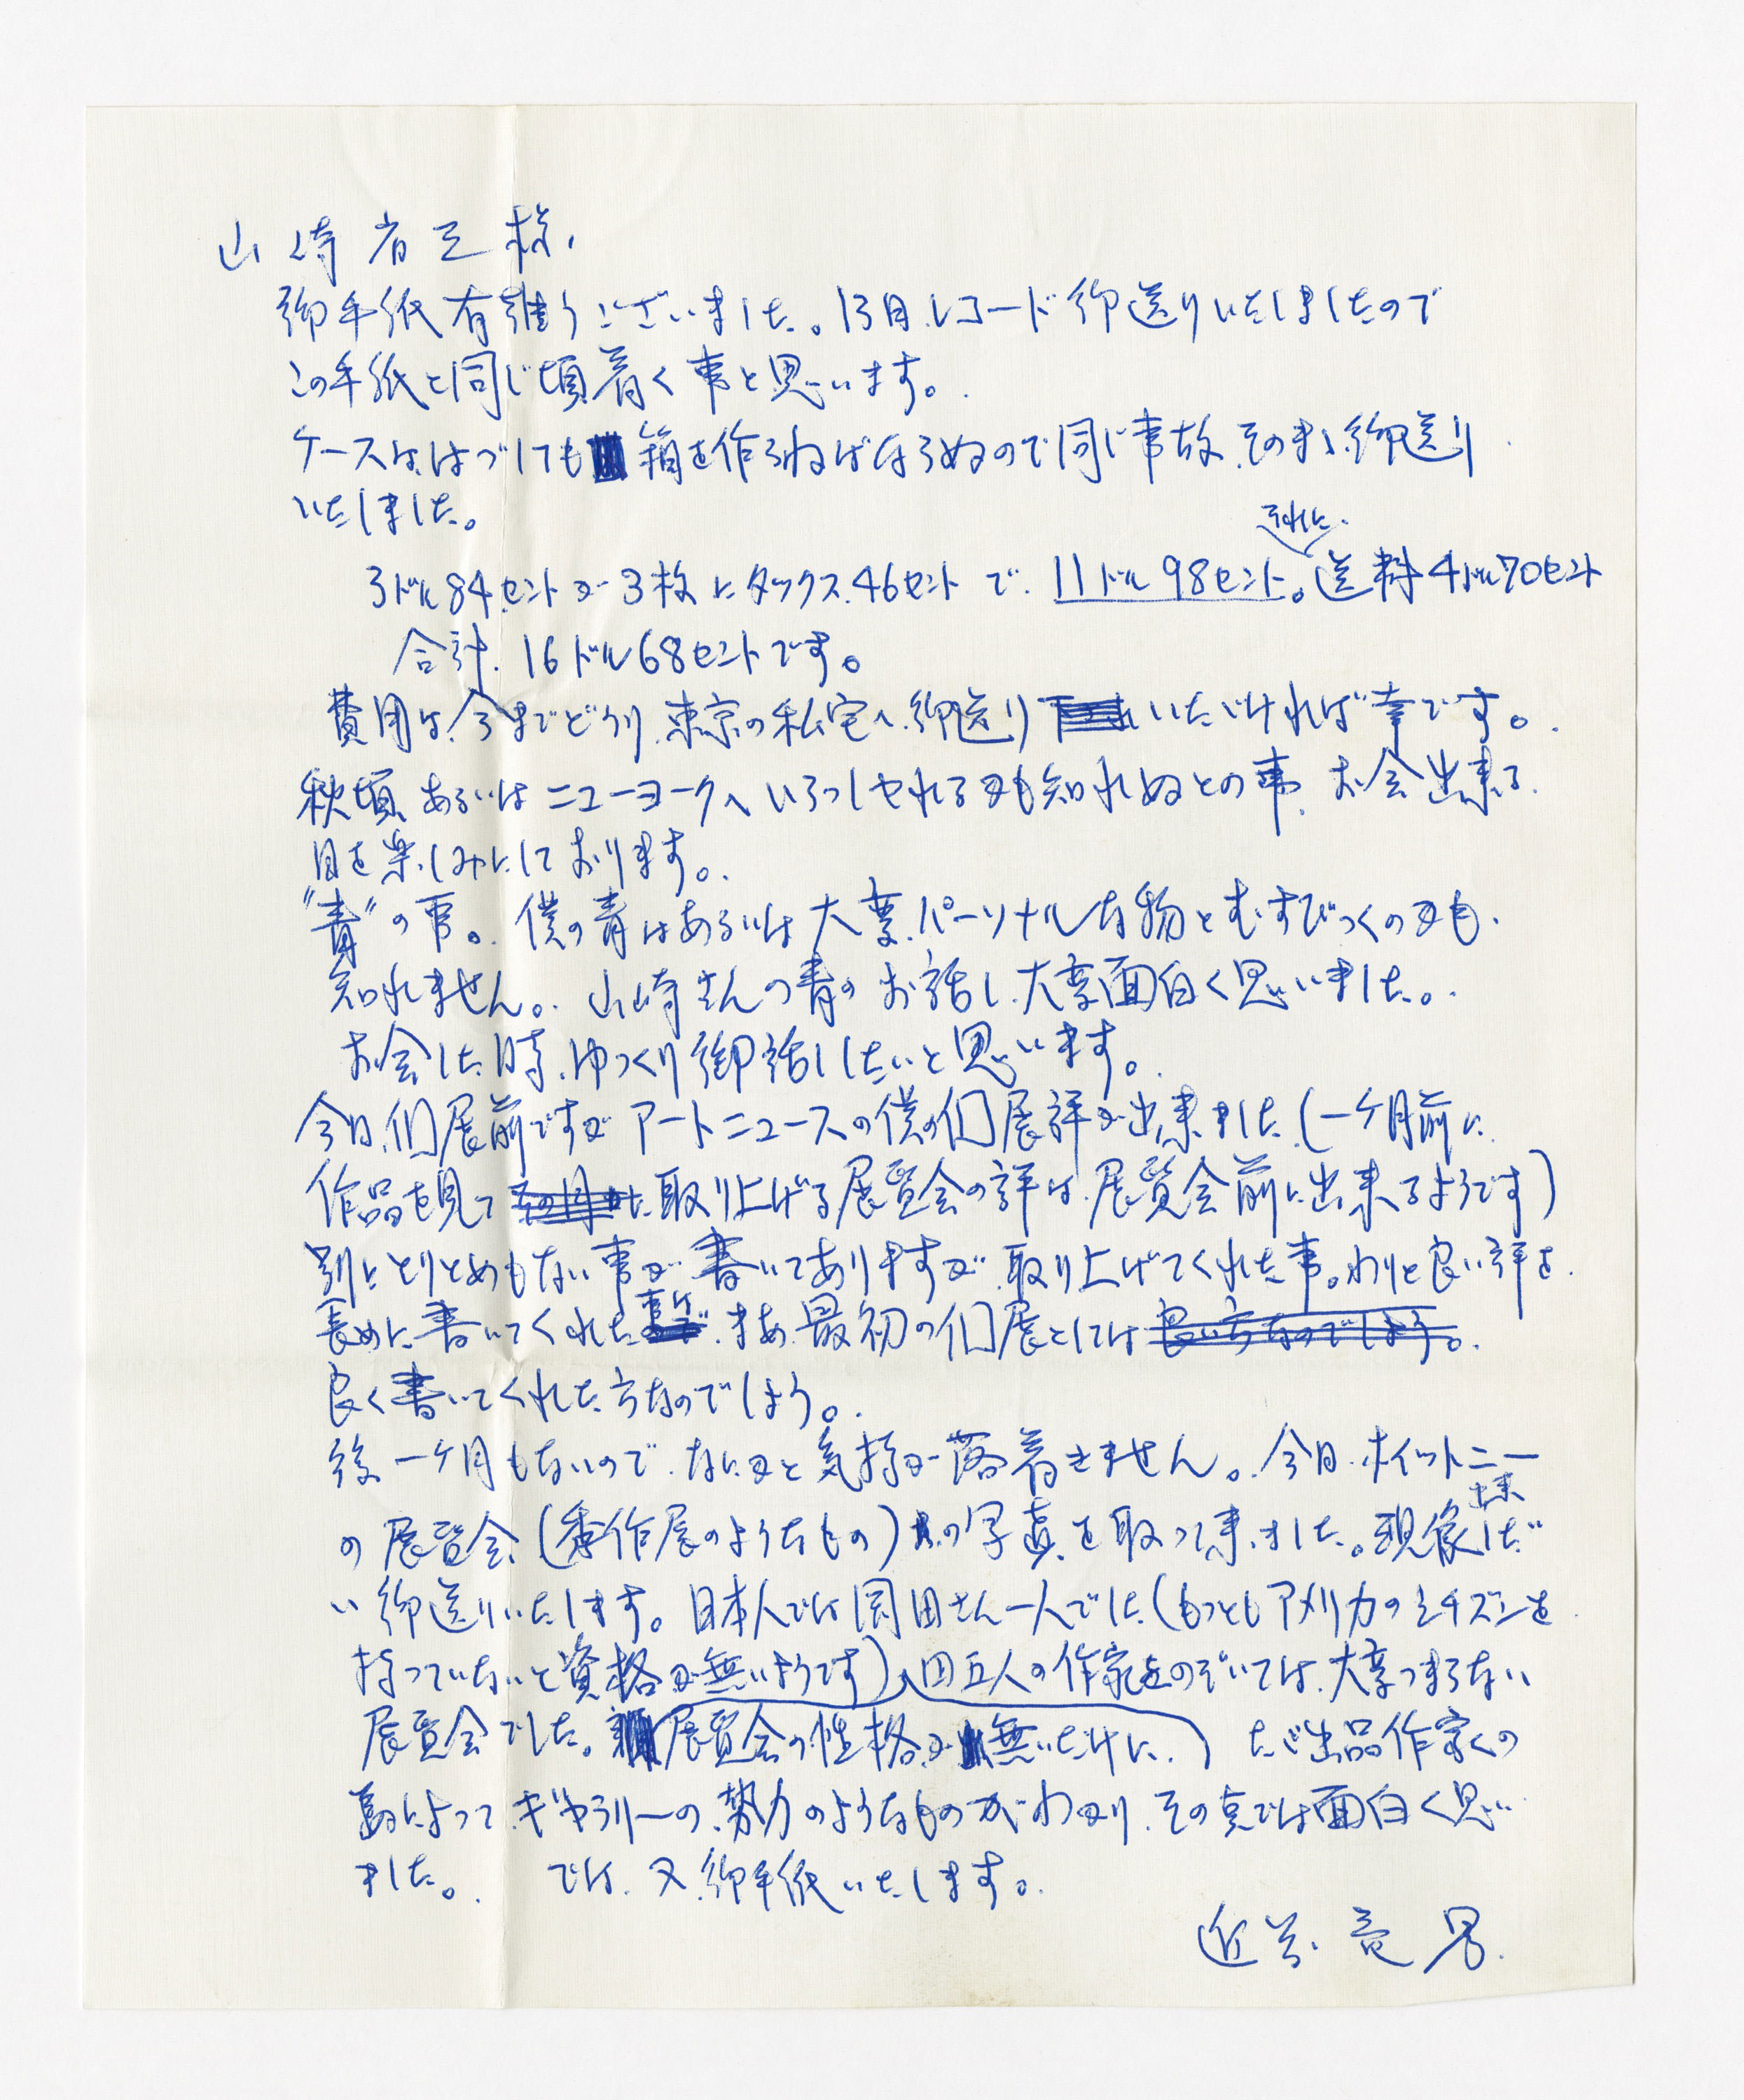 山崎省三様、
御手紙有難うございました。13日、レコード御送りいたしましたので
この手紙と同じ頃着く事と思います。
ケースは、はづしても箱を作らねばならぬので同じ事故、そのまゝ御送り
いたしました。
それに
3ドル84セントが3枚にタックス、46セントで、11ドル98セント。送料4ドル70セント
合計、16ドル68セントです。
費用は、今までどうり、東京の私宅へ、御送りいただければ幸です。
秋頃、あるいはニューヨークへいらっしゃれるかも知れぬとの事、お会出来る
日を楽しみにしております。
"青"の事。僕の青はあるいは大変、パーソナルな物とむすびつくのかも
知れません。山崎さんの青のお話し、大変面白く思いました。
お会した時、ゆっくり御話ししたいと思います。
今日、個展前ですがアートニュースの僕の個展評が出来ました(一ケ月前に
作品を見て取り上げる展覧会の評は、展覧会前に出来るようです)
別にとりとめもない事が書いてありますが、取り上げてくれた事。わりと良い評を
長めに書いてくれた事など、まあ、最初の個展としては良い方なのでしょう。
良く書いてくれた方なのでしょう。
後一ケ月もないので、なにかと気持が落着きません。今日、ホイットニー
の展覧会(秀作展のようなもの)の写真を取って来ました。現像出来しだ
い御送りいたします。日本人では岡田さん一人でした(もっともアメリカのシチズンを
持っていないと資格が無いようです)、四五人の作家をのぞいては、大変つまらない
展覧会でした。展覧会の性格が無いだけに、)ただ出品作家の
為によって、ギャラリーの、勢力のようなものがわかり、その点では面白く思い
ました。では、又、御手紙いたします。
近藤竜男